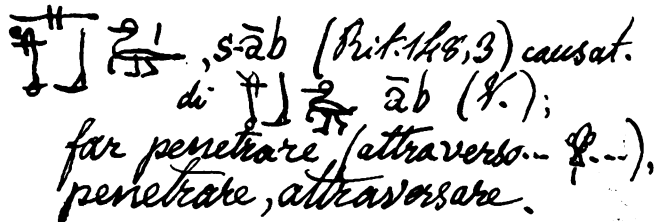 , s-āb (Rit. 148, 3) causat.
di āb (V.);
far penetrare (attraverso... ...),
penetrare, attraversare.